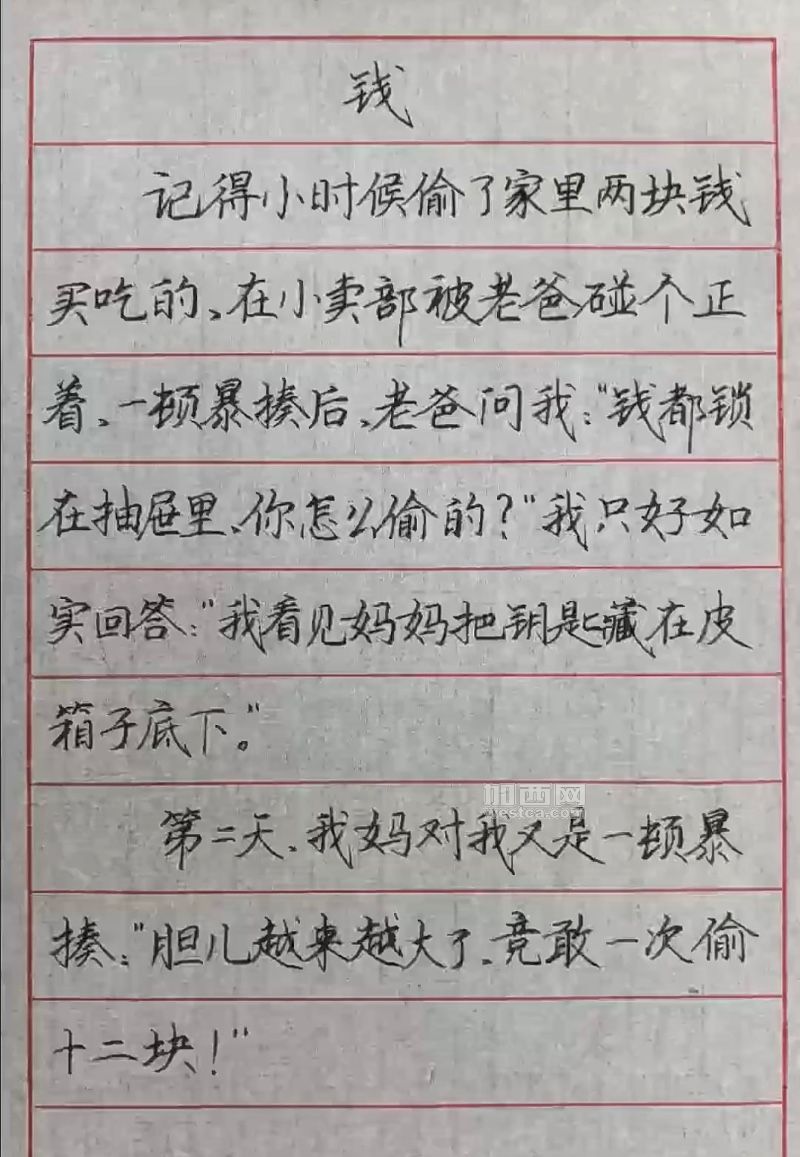 钱
记得小时候偷了家里两块钱
买吃的、在小卖部被老爸碰个正
着、一顿暴揍后、老爸问我:"钱都锁
在抽屉里、你怎么偷的?"我只好如
实回答:"我看见妈妈把钥匙藏在皮
箱子底下。"
加西网
westca.com
第二天、我妈对我又是一顿暴
揍:"胆儿越来越大了、竟敢一次偷
十二块!"